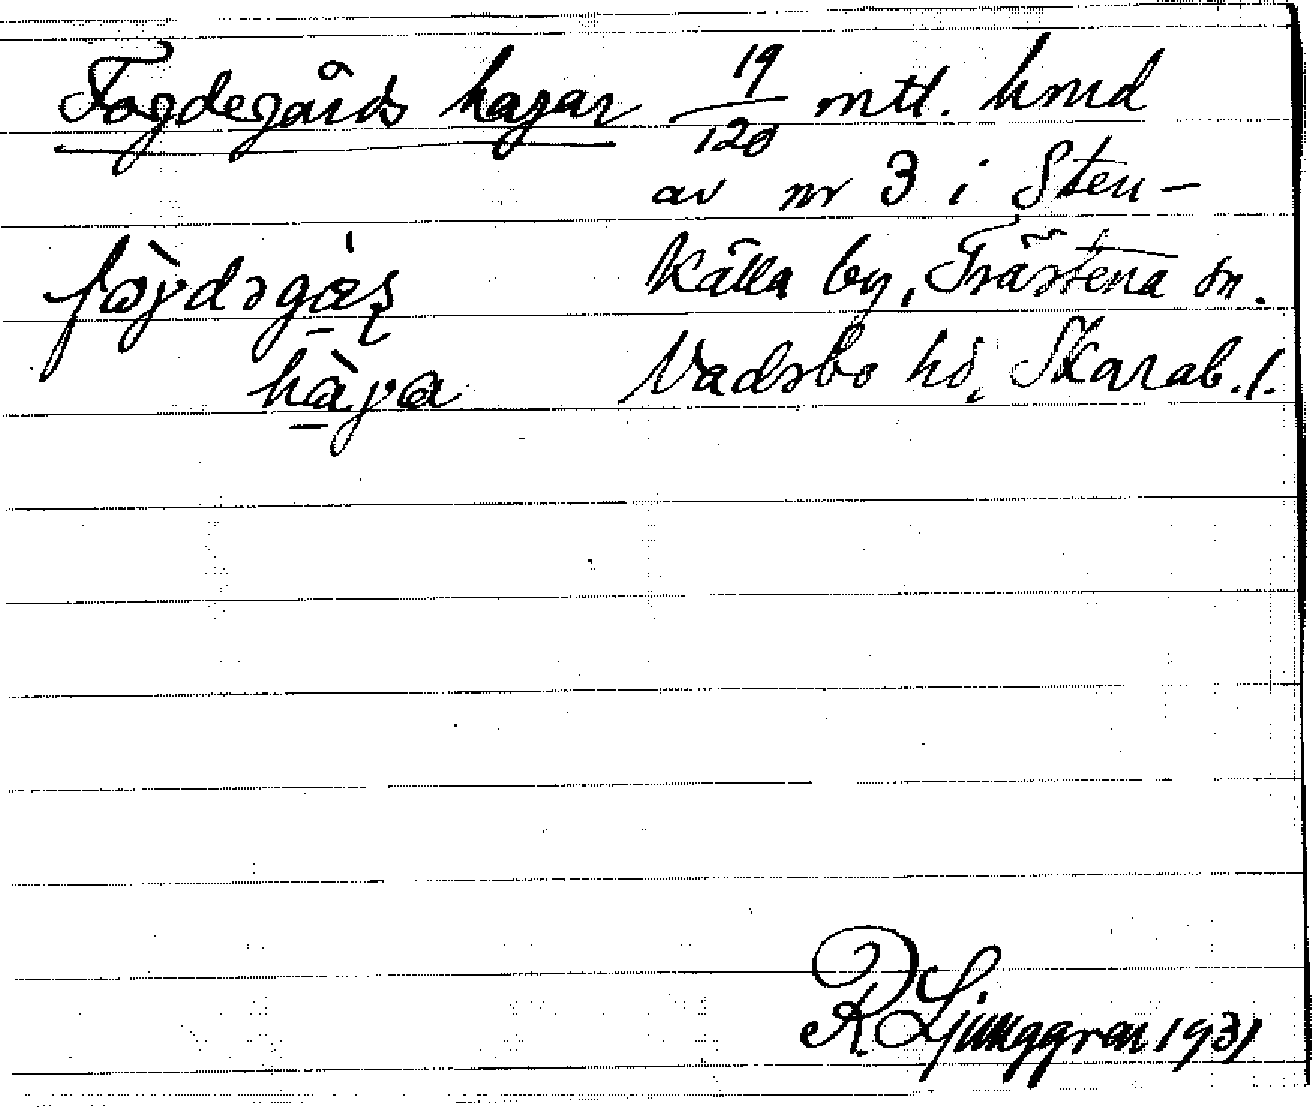 Fogdegårds hagar 19/120 mtl. hmd
av nr 3 i Sten-
källa by, Trästena sn.
Vadsbo hd, Skarab. l.
R Ljunggren 1931